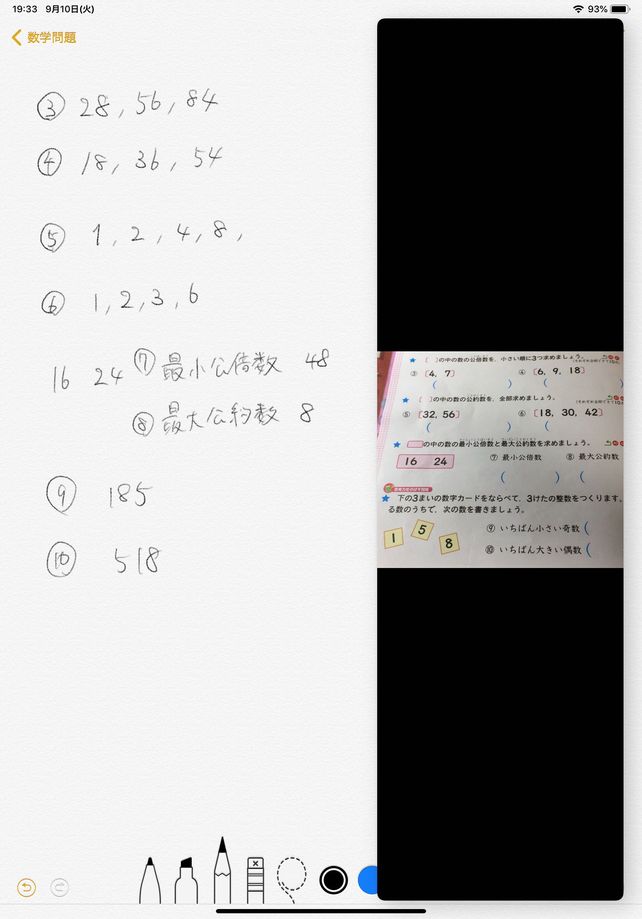 19:33 9月10日(火)
93%
数学問題
③ 28, 56, 84
④ 18, 36, 54
⑤ 1, 2, 4, 8,
⑥ 1, 2, 3, 6
16 24 ⑦ 最小公倍数 48
⑧ 最大公約数 8
⑨ 185
⑩ 518
★〔 〕の中の数の公倍数を、小さい順に3つ求めましょう。
③〔4, 7〕 ④〔6, 9, 18〕
( ) (
★〔 〕の中の数の公約数を、全部求めましょう。
⑤〔32, 56〕 ⑥〔18, 30, 42〕
( ) (
★ の中の数の最小公倍数と最大公約数を求めましょう。
16 24 ⑦ 最小公倍数 ⑧ 最大公約数
( ) (
★ 下の3まいの数字カードをならべて、3けたの整数をつくります。
る数のうちで、次の数を書きましょう。
1 5 8
⑨ いちばん小さい奇数 (
⑩ いちばん大きい偶数 (